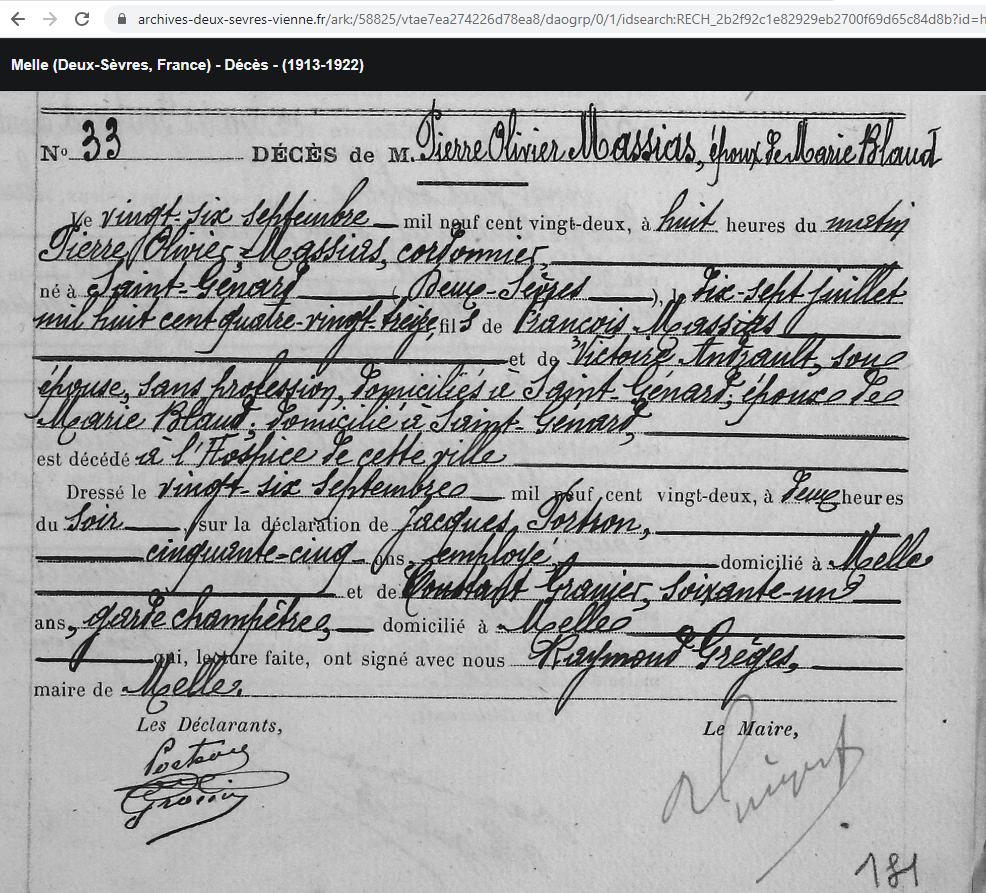 archives-deux-sevres-vienne.fr/ark:/58825/vtae7ea274226d78ea8/daogrp/0/1/idsearch:RECH_2b2f92c1e82929eb2700f69d65c84d8b?id=h
Melle (Deux-Sèvres, France) - Décès - (1913-1922)
No 33 DÉCÈS de M. Pierre Olivier Massias, époux de Marie Blaud
Le vingt-six septembre mil neuf cent vingt-deux, à huit heures du matin
Pierre Olivier Massias, cordonnier,
né à Saint-Génard (Deux-Sèvres), l dix-sept juillet
mil huit cent quatre-vingt-treize, fils de François Massias
et de Victoire Andrault, son
épouse, sans profession, domiciliés à Saint-Génard; époux de
Marie Blaud; domicilié à Saint-Génard,
est décédé à l'Hospice de cette ville
Dressé le vingt-six septembre mil neuf cent vingt-deux, à deux heures
du soir, sur la déclaration de Jacques Portron,
cinquante-cinq ans, employé, domicilié à Melle
et de Constant Granier, soixante-un
ans, garde champêtre, domicilié à Melle
qui, lecture faite, ont signé avec nous Raymond Grèges,
maire de Melle.
Les Déclarants, Le Maire,
Portron
181